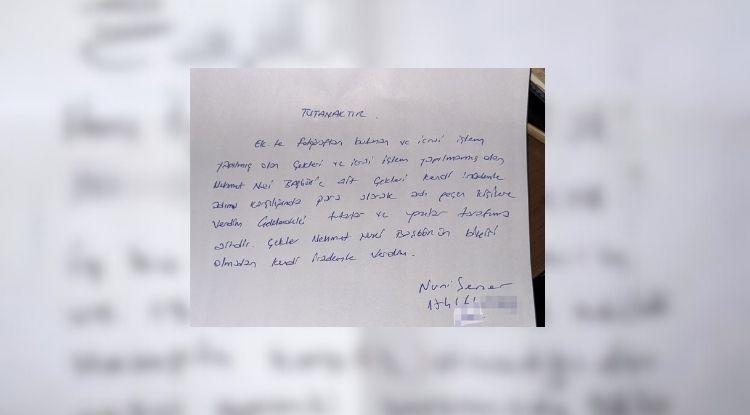 TUTANAKTIR.
Ek-te fotoğrafları bulunan ve icrai işlem
yapılmış olan çekleri ve icrai işlem yapılmamış olan
Mehmet Nuri BAŞGÜN'e ait çekleri kendi irademle
adıma karşılığında para alarak adı geçen kişilere
verdim çeklerdeki imzalar ve yazılar tarafıma
aittir. Çekler Mehmet Nuri BAŞGÜN'ün bilgisi
olmadan kendi irademle verdim.
Nuri Şener